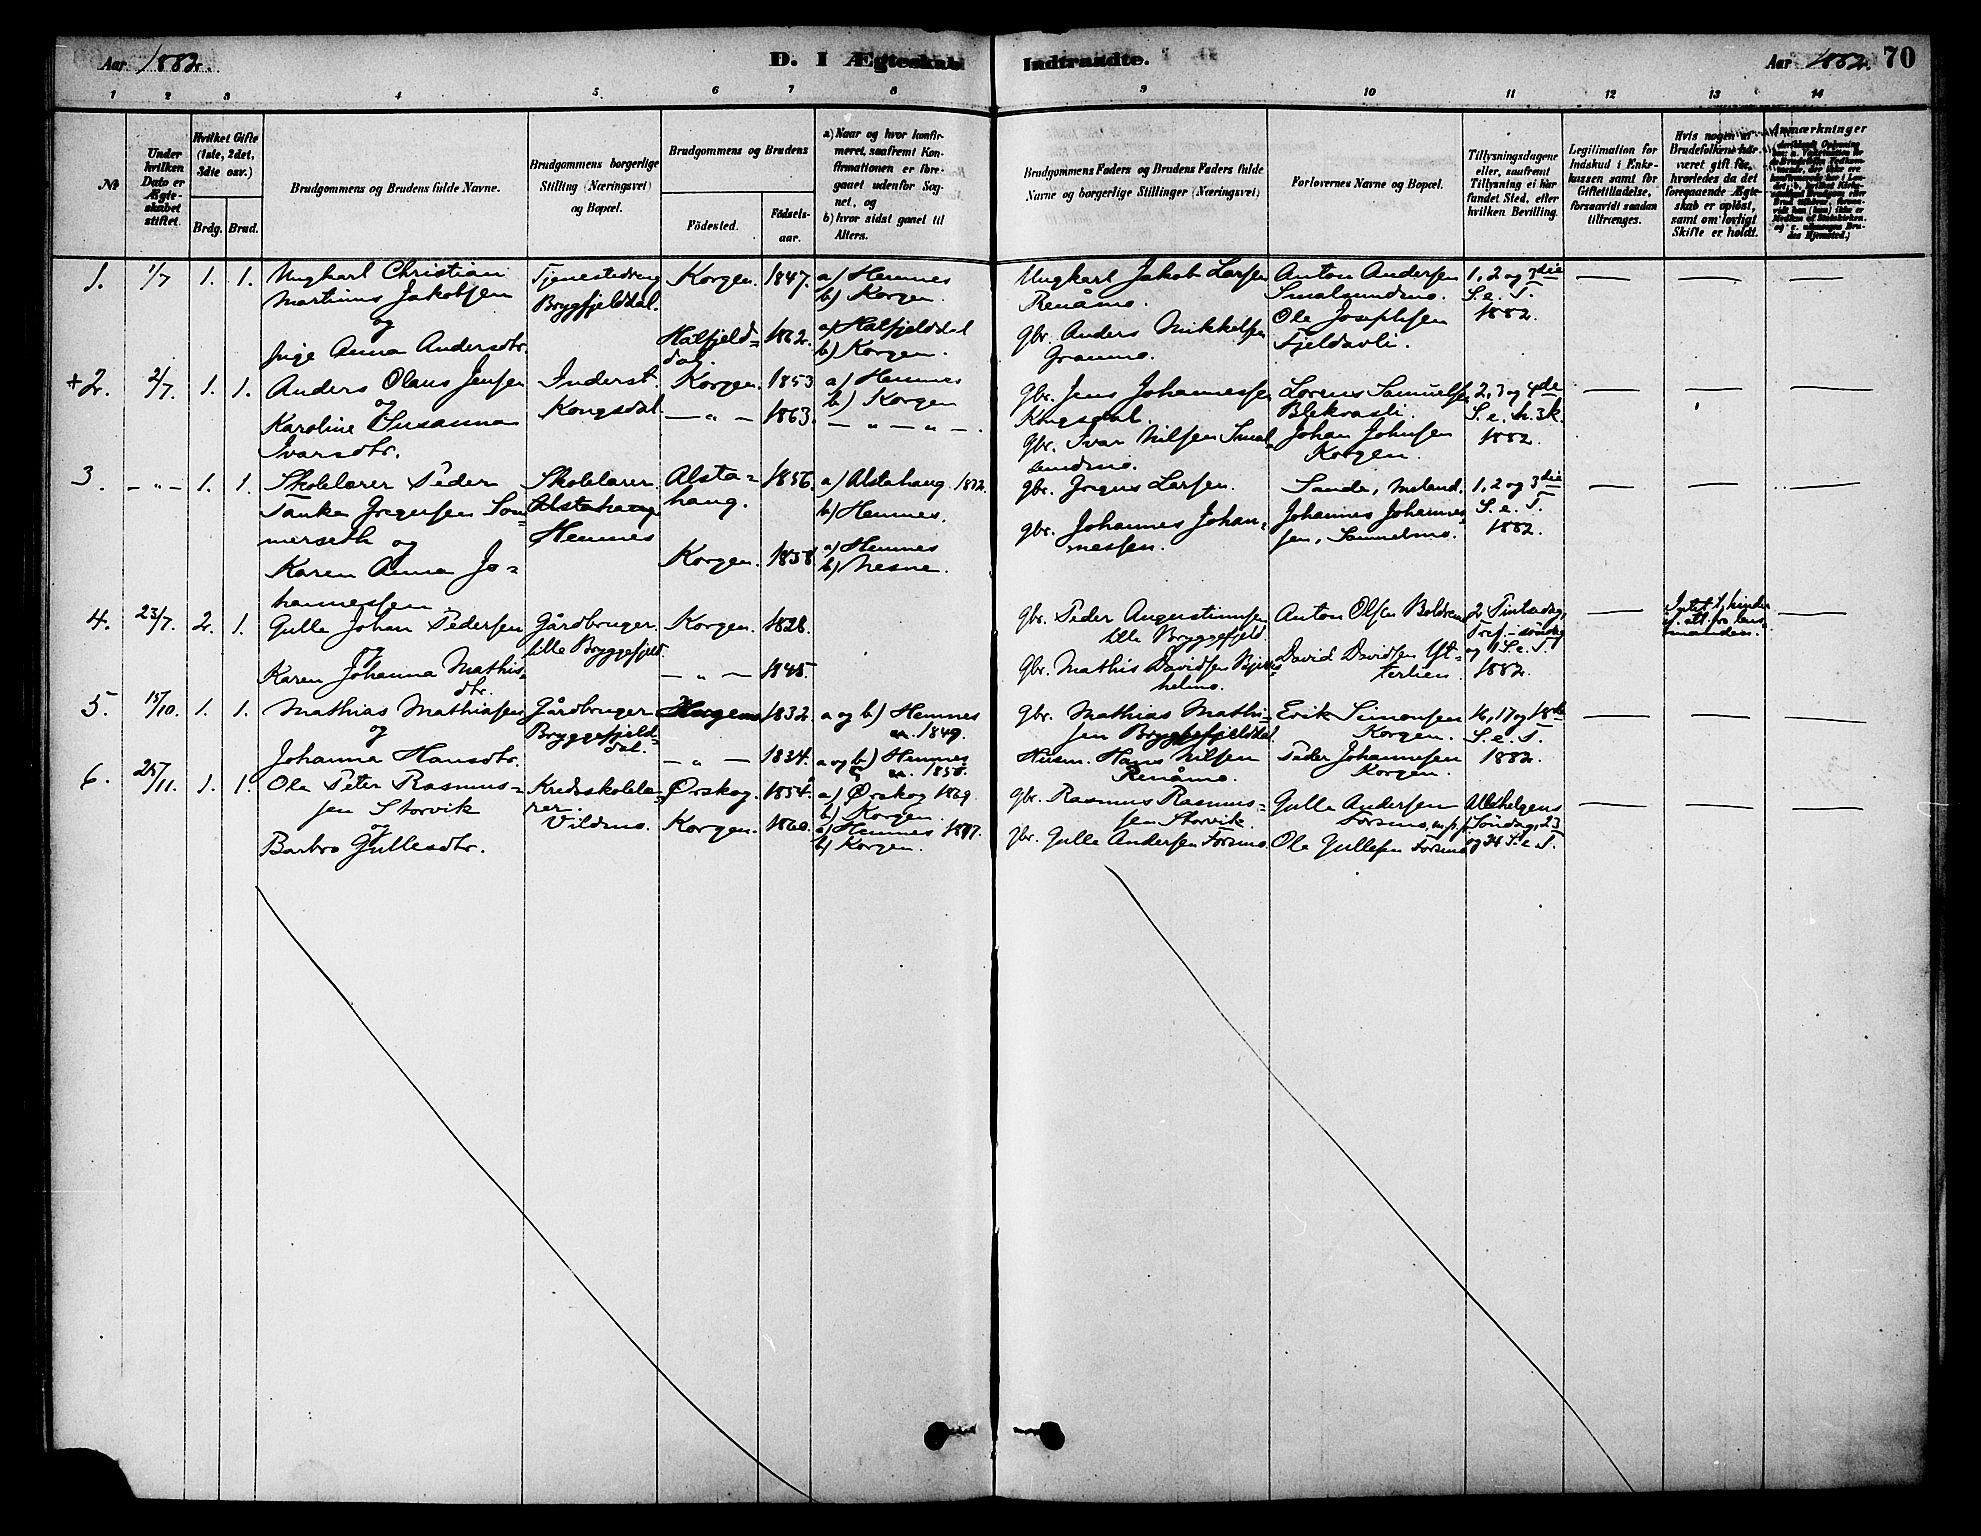 Aar 1882.
D. I Ægteskab
Indtraadte.
Aar 1882.
70
1 2 3 4 5. 6 7 8
9 10 11 12 13 14
№
Under hvilken Dato er Ægteskabet stiftet.
Hvilket Gifte (1ste, 2det, 3die osv.)
Brdg. Brud.
Brudgommens og Brudens fulde Navne.
Brudgommens borgerlige Stilling (Næringsvei) og Bopæl.
Brudgommens og Brudens
Fødested.
Fødselsaar.
a) Naar og hvor konfirmeret, saafremt Konfirmationen er foregaaet udenfor Sognet, og
b) hvor sidst gaaet til Alters.
Brudgommens Faders og Brudens Faders fulde Navne og borgerlige Stillinger (Næringsvei)
Forlovernes Navne og Bopæl.
Tillysningsdagene eller, saafremt Tillysning ei har fundet Sted, efter hvilken Bevilling.
Legitimation for Indskud i Enkekassen samt for Giftetilladelse, forsaavidt saadan tiltrænges.
Hvis nogen af Brudefolkene har været gift før, hvorledes da det foregaaende Ægteskab er opløst, samt om lovligt Skifte er holdt.
Anmærkninger
1. 1/7 1. 1.
Ungkarl Christian
Martinus Jakobsen
og
Inge Anna Andersdtr.
Tjenestedreng
Bryggfjelddal.
Korgen. 1847.
a) Hemnes
b) Korgen.
Hatfjeld=
dal. 1862.
a) Hatfjelddal
b) Korgen.
Ungkarl Jakob Larsen
Renåmo.
gbr. Anders Mikkelsen
Granmo.
Anton Andersen
Smalsundmo.
Ole Josephsen
Fjeldavli.
1, 2 og 3die
S. e. T.
1882.
+2. 2/7. 1. 1.
Anders Olaus Jensen
og
Karoline Susanna
Ivarsdtr.
Inderst.
Kongsdal.
Korgen. 1853
— " — 1863.
a) Hemnes
b) Korgen
— " — " —.
gbr. Jens Johannessen
Kngsdal.
gbr. Ivar Nilsen Smal=
sundmo.
Lorens Samuelsen
Blekvasli.
Johan Johnsen
Korgen.
2, 3 og 4de
S. e. h. 3k.
1882.
3. — " — 1. 1.
Skolelærer Peder
Tanke Jrgensen Som=
merseth og
Karen Anna Jo=
hannessen
Skolelærer.
Alstahaug
Hemnes
Alsta=
haug. 1856.
a) Alstahaug 1872.
b) Hemnes.
Korgen. 1858.
a) Hemnes
b) Nesne.
gbr. Jrgens Larsen.
gbr. Johannes Johan=
nessen.
Johannes Johannes=
sen,
1, 2 og 3die
S. e. T.
1882.
4. 23/7. 2. 1.
Gulle Johan Pedersen
og
Karen Johanna Mathis=
dtr.
Gårdbruger
lille Bryggefjeld.
Korgen. 1828.
— " — 1845.
gbr. Peder Augustinusen
lille Bryggefjeld.
gbr. Mathis Davidsen
Anton Olsen
David Davidsen Yt=
terlien.
2 Pintsedag,
Tref.-søndag
og 1 S. e. T.
1882.
5. 15/10. 1. 1.
Mathias Mathiasen
og
Johanna Hansdtr.
Gårdbruger
Bryggefjeld=
dal.
Korgen 1832.
— " — 1834.
a og b) Hemnes
1849.
a og b) Hemnes
gbr. Mathias Mathi=
sen Bryggefjelddal.
Husm. Hans Nilsen
Renåmo.
Erik Simonsen
Korgen.
Peder Johannesen
Korgen.
16, 17 og 18de
S. e. T.
1882.
6. 25/11. 1. 1.
Ole Peter Rasmus=
sen Storvik
og
Barbro Gullesdtr.
Kredsskolelæ=
rer.
Vildmo.
Ørskog. 1854.
Korgen. 1860.
a) Ørskog 1869
b) Korgen.
a) Hemnes 1877.
b) Korgen.
gbr. Rasmus Rasmus=
sen Storvik.
gbr. Gulle Andersen Forsmo.
Gulle Andersen
Forsmo,
Ole Gullesen Forsmo
Allehelgens
Søndag, 23
og 24 S. e. T.